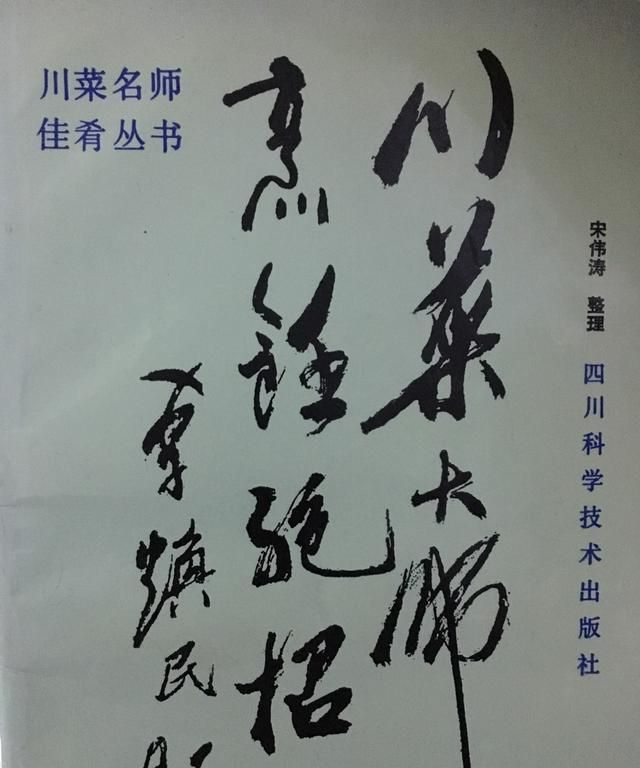 川菜名师
佳肴丛书
川菜大师
烹飪絕招
民
宋伟涛 整理
四川科学技术出版社